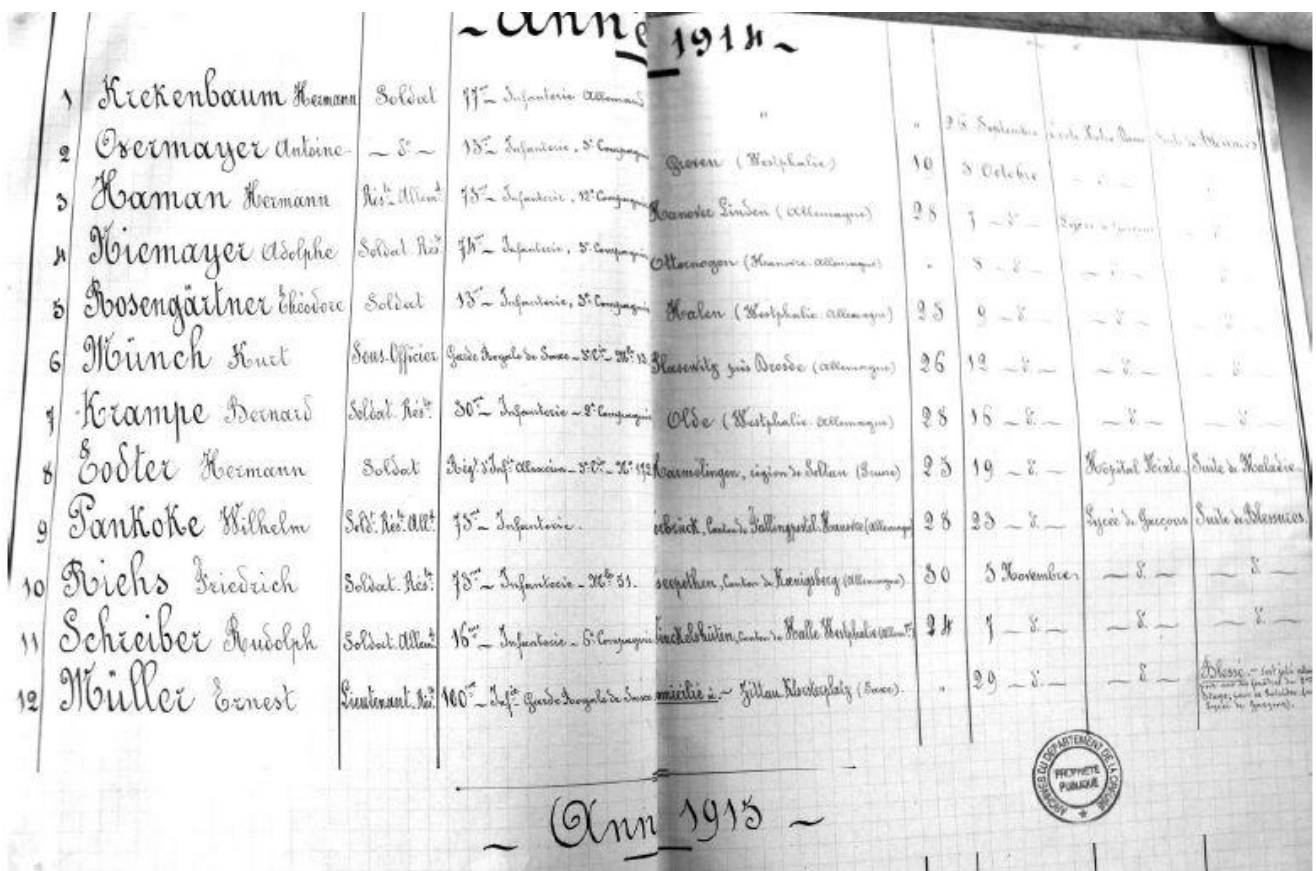 ~ Anné 1914 ~
1 Krekenbaum Hermann Soldat 77me Infanterie Allemand " " 26 Septembre Suite de Blessures
2 Osermayer Antoine - d° - 13me Infanterie, 3e Compagnie Greven (Westphalie) 19 3 Octobre - d° - d°
3 Haman Hermann Réste Allemd 73me Infanterie, 12e Compagnie Hanovre Linden (Allemagne) 28 7 - d° - Lycée de garçons d°
4 Niemayer Adolphe Soldat Résте 74me Infanterie, 3e Compagnie (Hanovre Allemagne) " 8 - d° - - d° - d°
5 Rosengärtner Théodore Soldat 13me Infanterie, 3e Compagnie Halen (Westphalie Allemagne) 23 9 - d° - - d° - d°
6 Münch Kurt Sous-Officier Garde Royale de Saxe - près Dresde (Allemagne) 26 12 - d° - - d° - - d° -
7 Krampe Bernard Soldat Résте 30me Infanterie - 2e Compagnie Olde (Westphalie Allemagne) 28 16 - d° - - d° - d°
8 Todter Hermann Soldat Régt d'Infie 172 Harmelingen, région de Soltau (Prusse) 23 19 - d° - Hôpital Mixte Suite de Maladie
9 Pankoke Wilhelm Soldt Résте Allt 73me Infanterie. Canton de Fallingpostel Hanovre (Allemagne) 28 23 - d° - Lycée de Garçons Suite de Blessures
10 Riehs Friedrich Soldat Résте 73me Infanterie - Mle 51. Canton de Kœnigsberg (Allemagne) 30 3 Novembre - d° - - d° -
11 Schreiber Rudolph Soldat Allemd 16me Infanterie - 6e Compagnie Canton de Halle Westphalie 24 7 - d° - - d° - - d° -
12 Müller Ernest Lieutenant Résте 100me Infie Garde Royale de Saxe omicilié à - Zittau Klosterplatz (Saxe). " 29 - d° - - d° - Blessé.
ARCHIVES DU DEPARTEMENT DE LA CREUSE
PROPRIETE
PUBLIQUE
~ Ann 1915 ~